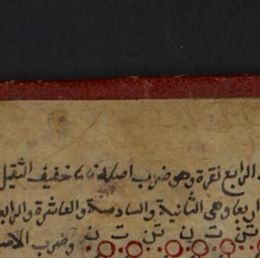 الرابع نقرة وهو ضرب اصله خفيف الثقيل
اربعا وهى الثانية والسادسة والعاشرة والرابع
تن تن تن تن تن وضرب الاصل